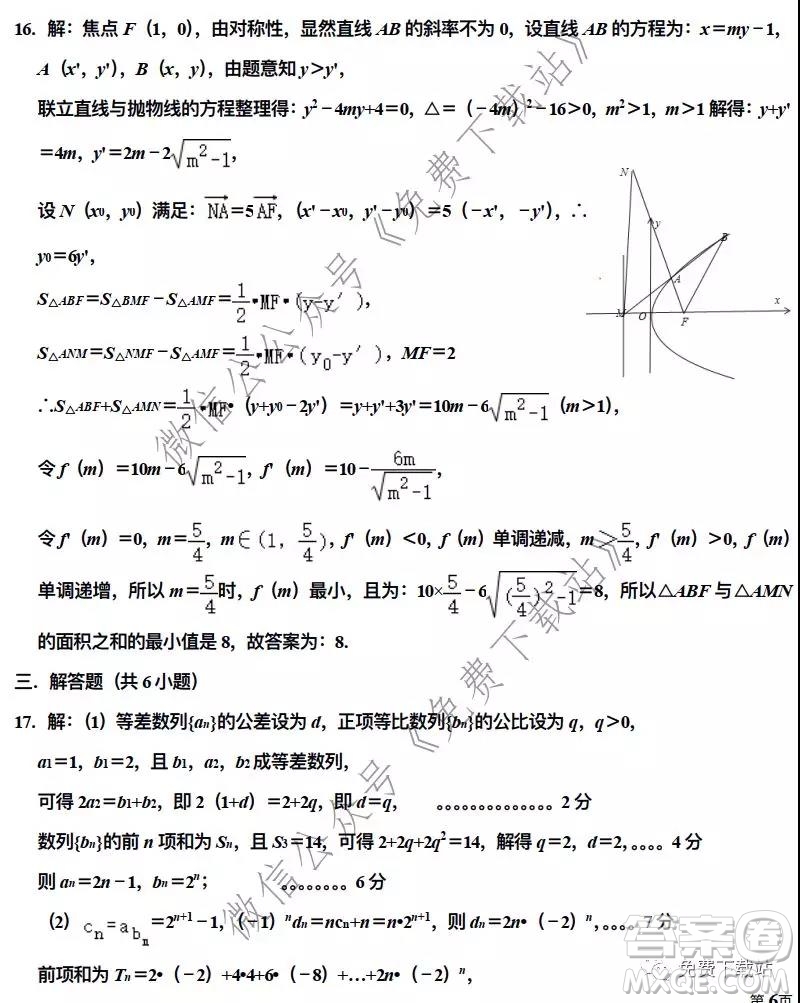 16. 解：焦点 F（1，0），由对称性，显然直线 AB 的斜率不为 0，设直线 AB 的方程为：x＝my－1，
A（x'，y'），B（x，y），由题意知 y＞y'，
联立直线与抛物线的方程整理得：y²－4my+4＝0，△＝（－4m）²－16＞0，m²＞1，m＞1 解得：y+y'
＝4m，y'＝2m－2√(m²－1)，
设 N（x₀，y₀）满足：→NA＝5→AF，（x'－x₀，y'－y₀）＝5（－x'，－y'），∴
y₀＝6y'，
S△ABF＝S△BMF－S△AMF＝1/2•MF•（y－y′），
S△ANM＝S△NMF－S△AMF＝1/2•MF•（y₀－y′），MF＝2
∴S△ABF+S△AMN＝1/2•MF•（y+y₀－2y'）＝y+y'+3y'＝10m－6√(m²－1)（m＞1），
令 f（m）＝10m－6√(m²－1)，f'（m）＝10－6m/√(m²－1)，
令 f'（m）＝0，m＝5/4，m∈（1，5/4），f'（m）＜0，f（m）单调递减，m＞5/4，f'（m）＞0，f（m）
单调递增，所以 m＝5/4时，f（m）最小，且为：10×5/4－6√((5/4)²－1)＝8，所以△ABF 与△AMN
的面积之和的最小值是 8，故答案为：8.
N
y
B
A
M
O
F
x
三．解答题（共 6 小题）
17. 解：（1）等差数列{aₙ}的公差设为 d，正项等比数列{bₙ}的公比设为 q，q＞0，
a₁＝1，b₁＝2，且 b₁，a₂，b₂ 成等差数列，
可得 2a₂＝b₁+b₂，即 2（1+d）＝2+2q，即 d＝q，　。。。。。。。。。。。。。。2 分
数列{bₙ}的前 n 项和为 Sₙ，且 S₃＝14，可得 2+2q+2q²＝14，解得 q＝2，d＝2，。。。。4 分
则 aₙ＝2n－1，bₙ＝2ⁿ；　。。。。。。。。6 分
（2）cₙ＝a_bₙ＝2ⁿ⁺¹－1，（－1）ⁿdₙ＝ncₙ+n＝n•2ⁿ⁺¹，则 dₙ＝2n•（－2）ⁿ，。。。。7 分
前项和为 Tₙ＝2•（－2）+4•4+6•（－8）+…+2n•（－2）ⁿ，
微信公众号《免费下载站》
微信公众号《免费下载站》
答案圈
免费下载站
第 6页